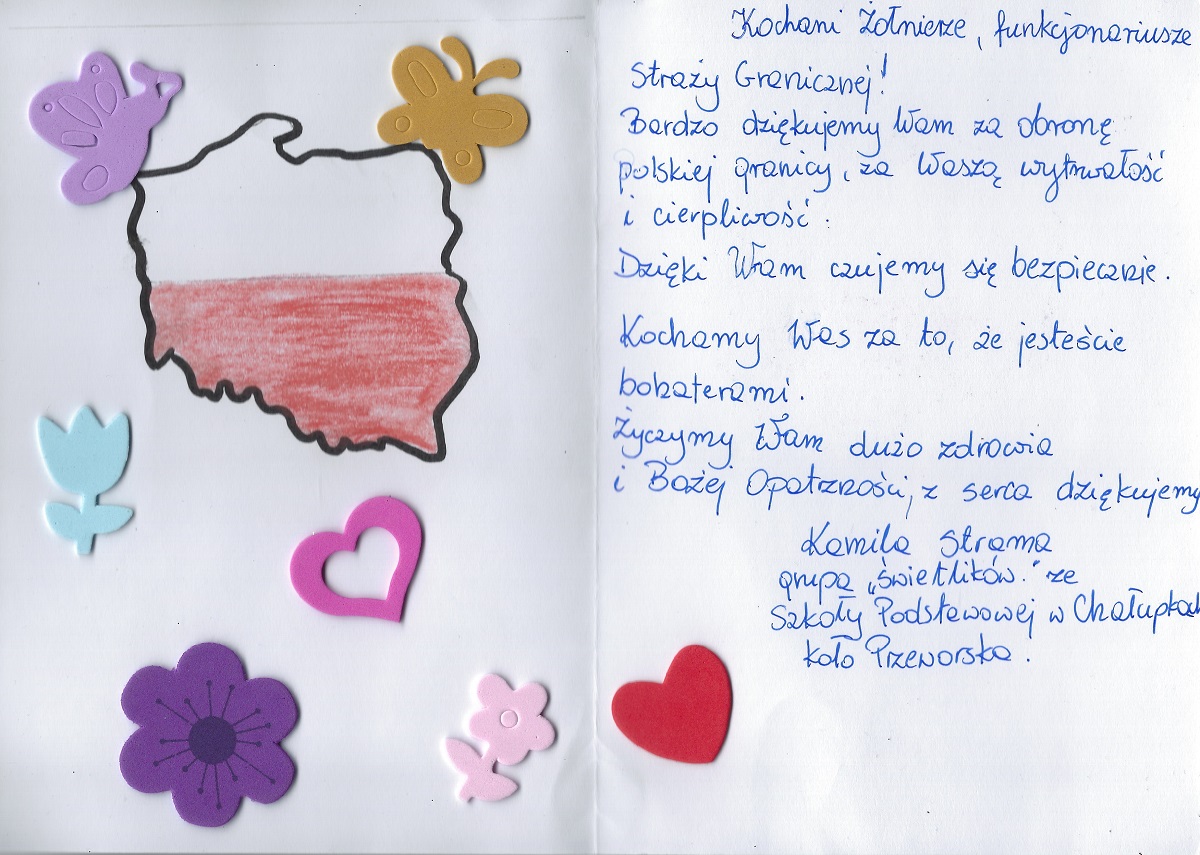 Kochani Żołnierze, funkcjonariusze
Straży Granicznej!
Bardzo dziękujemy Wam za obronę
polskiej granicy, za Waszą wytrwałość
i cierpliwość.
Dzięki Wam czujemy się bezpiecznie.
Kochamy Was za to, że jesteście
bohaterami.
Życzymy Wam dużo zdrowia
i Bożej Opatrzności, z serca dziękujemy
Kamila Strama
grupa „świetlików." ze
Szkoły Podstawowej w Chałupkach
koło Przeworska.